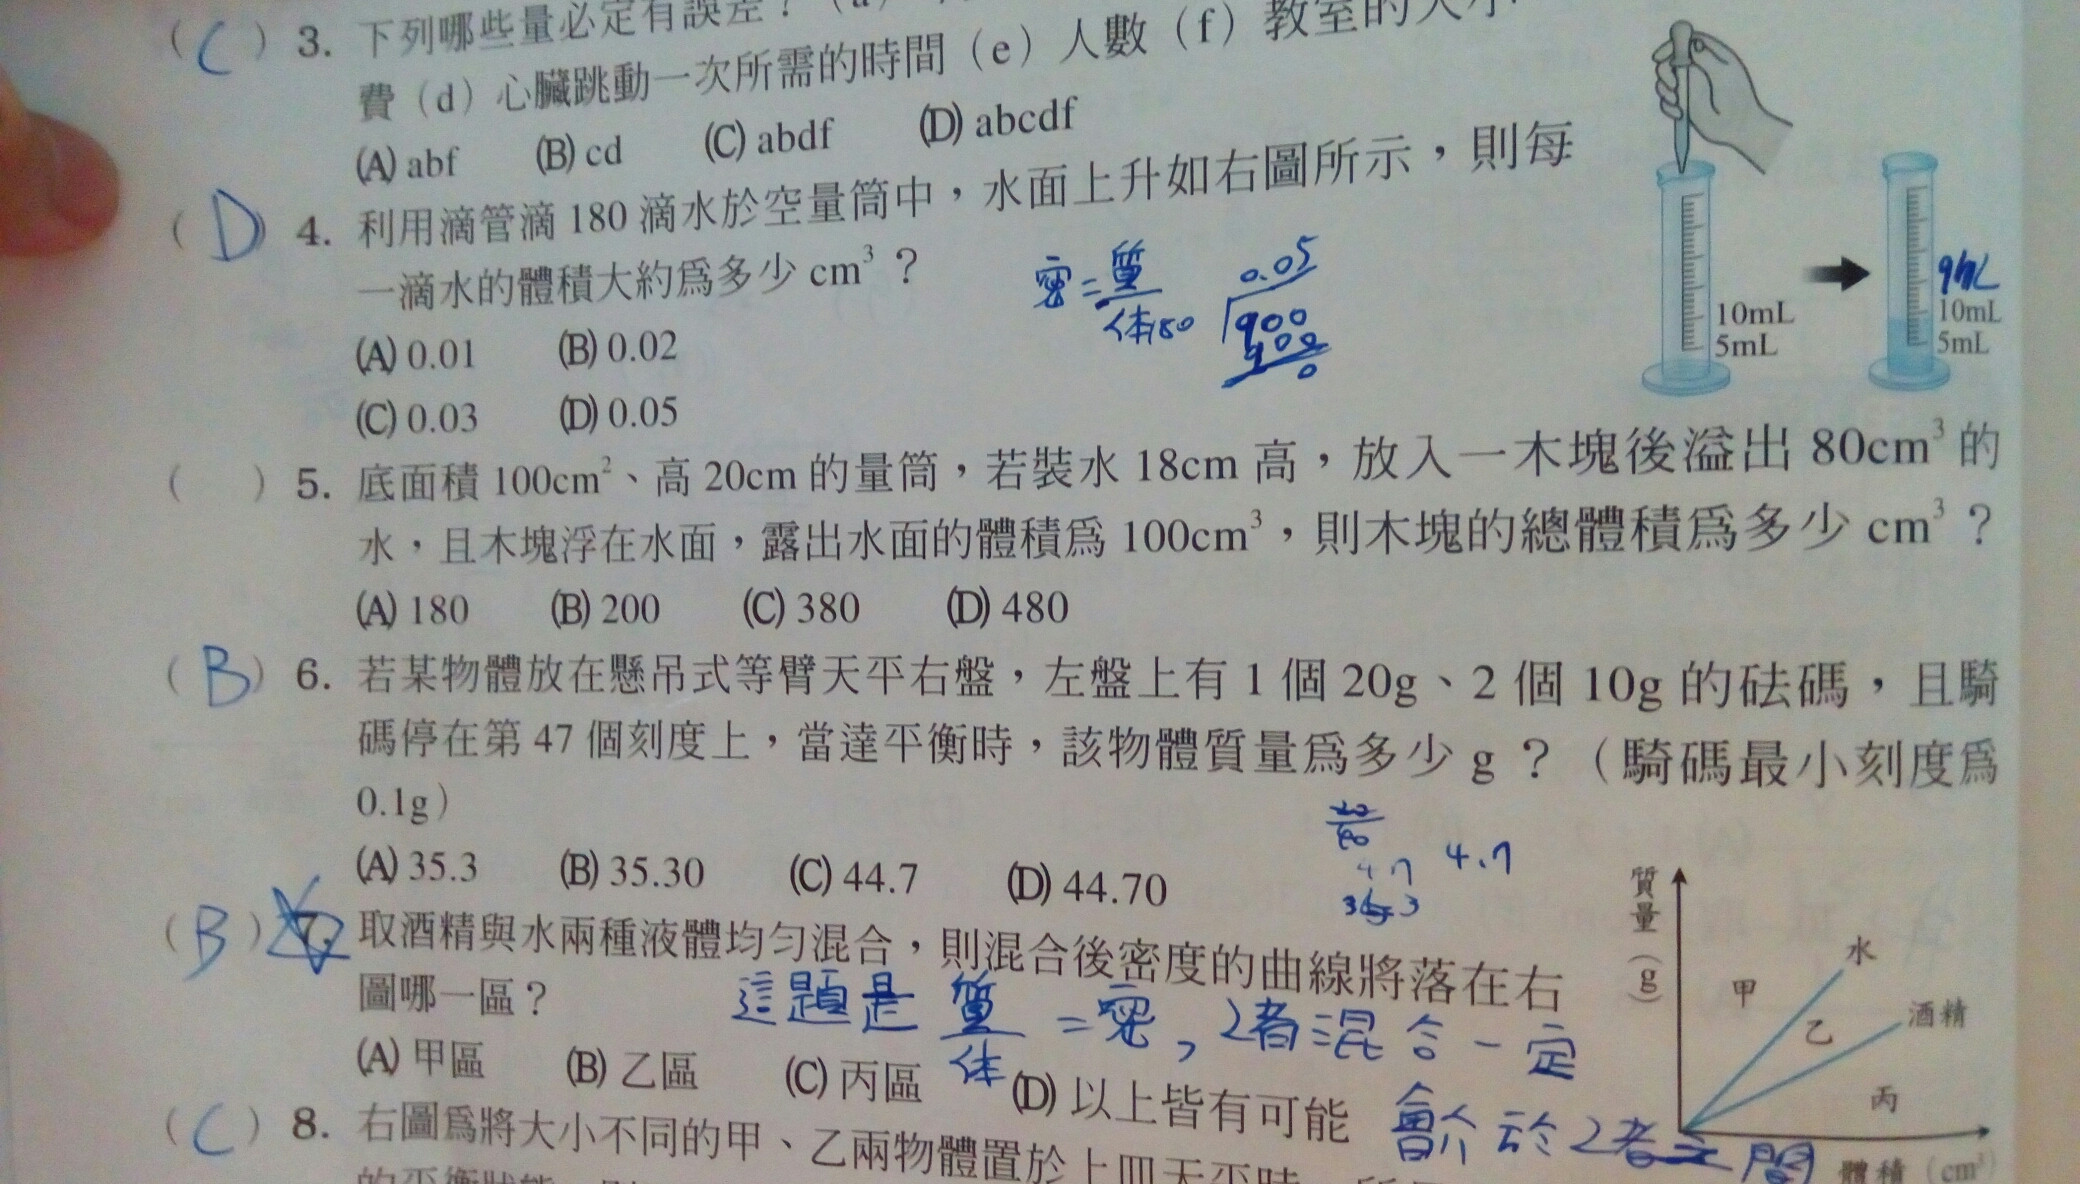 ( C ) 3. 下列哪些量必定有誤差？
費（d）心臟跳動一次所需的時間（e）人數（f）教室的大小
(A) abf (B) cd (C) abdf (D) abcdf
( D ) 4. 利用滴管滴 180 滴水於空量筒中，水面上升如右圖所示，則每
一滴水的體積大約為多少 cm³？
(A) 0.01 (B) 0.02
(C) 0.03 (D) 0.05
密=質/体
180
0.05
900
900
0
10mL
5mL
9mL
10mL
5mL
( ) 5. 底面積 100cm²、高 20cm 的量筒，若裝水 18cm 高，放入一木塊後溢出 80cm³ 的
水，且木塊浮在水面，露出水面的體積為 100cm³，則木塊的總體積為多少 cm³？
(A) 180 (B) 200 (C) 380 (D) 480
( B ) 6. 若某物體放在懸吊式等臂天平右盤，左盤上有 1 個 20g、2 個 10g 的砝碼，且騎
碼停在第 47 個刻度上，當達平衡時，該物體質量為多少 g？（騎碼最小刻度為
0.1g）
4.7
(A) 35.3 (B) 35.30 (C) 44.7 (D) 44.70
( B ) 7. 取酒精與水兩種液體均勻混合，則混合後密度的曲線將落在右
圖哪一區？
這題是 質/体 =密，2者混合一定
會介於2者之間
(A) 甲區 (B) 乙區 (C) 丙區 (D) 以上皆有可能
質量（g）
水
甲
酒精
乙
丙
體積（cm³）
( C ) 8. 右圖為將大小不同的甲、乙兩物體置於上皿天平時